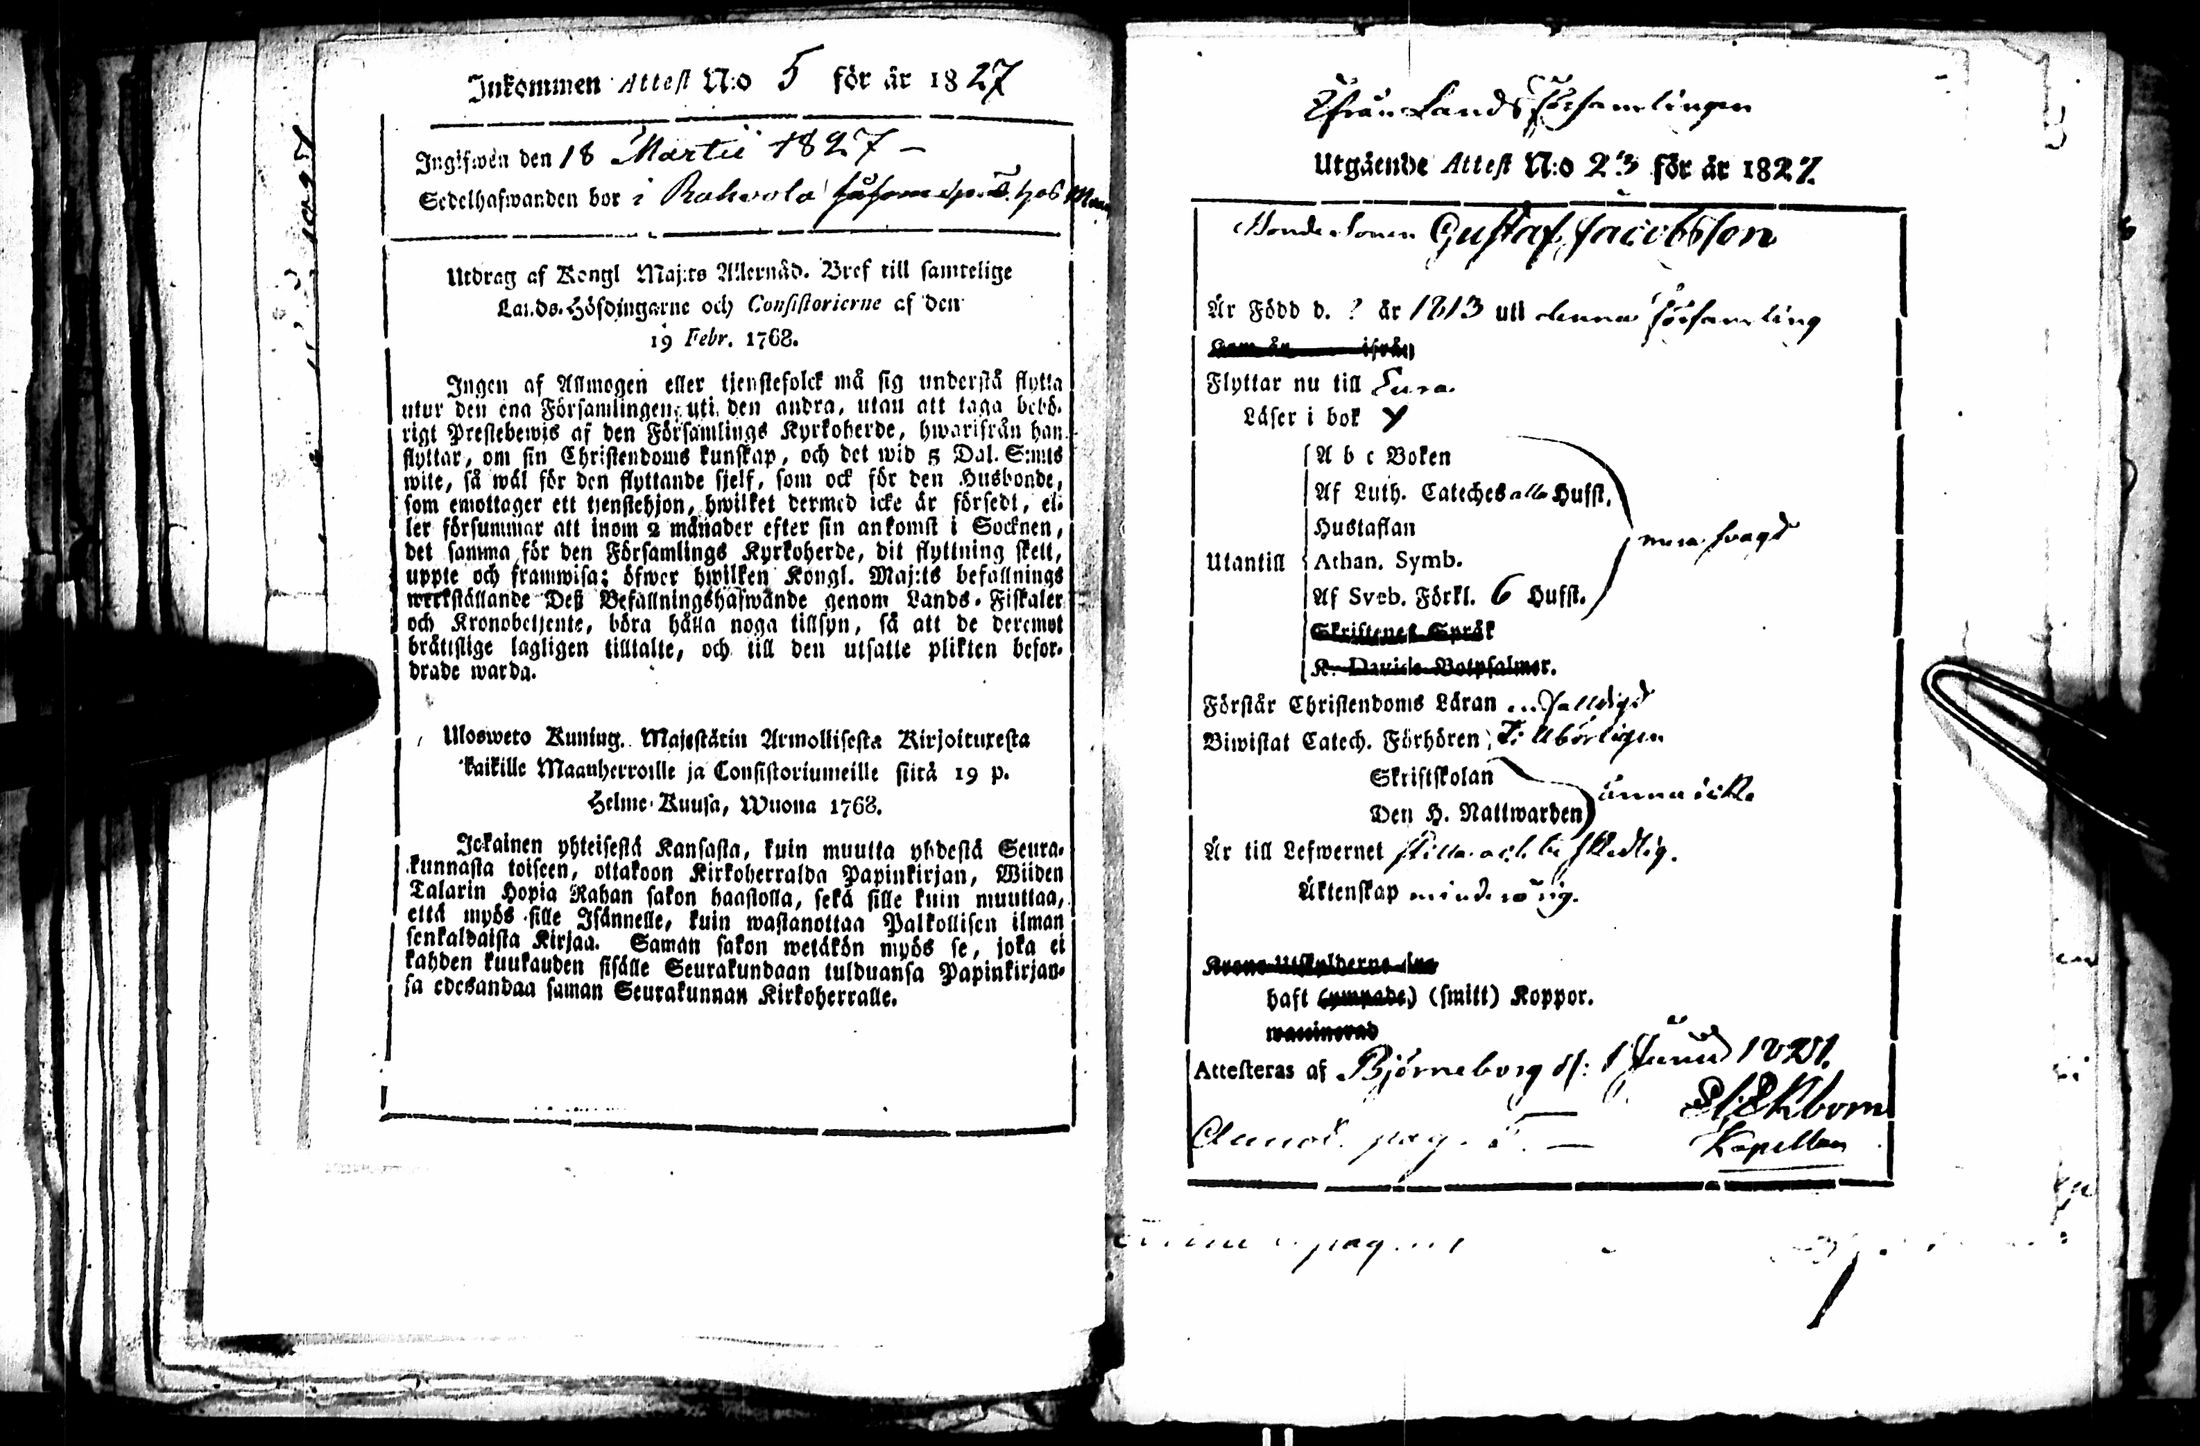 Inkommen Attest N:o 5 för år 1827
Ingifwen den 18 Martii 1827 –
Sedelhafwanden bor i Rahvola såsom hos
Utdrag af Kongl Maj:ts Allernåd. Bref till samtelige
Lands-Höfdingarne och Consistorierne af den
19 Febr. 1768.
Ingen af Allmogen eller tjenstefolck må sig understå flytta
utur den ena Församlingen uti den andra, utan att taga behö-
rigt Prestebewis af den Församlings Kyrkoherde, hwarifrån han
flyttar, om sin Christendoms kunskap, och det wid 5 Dal. S:mts
wite, så wäl för den flyttande sjelf, som ock för den Husbonde,
som emottager ett tjenstehjon, hwilket dermed icke är försedt, el-
ler försummar att inom 2 månader efter sin ankomst i Socknen,
det samma för den Församlings Kyrkoherde, dit flyttning skett,
uppte och framwisa; öfwer hwilken Kongl. Maj:ts befallnings
werkställande Deß Befallningshafwande genom Lands-Fiskaler
och Kronobetjente, böra hålla noga tillsyn, så att de deremot
bråttslige lagligen tilltalte, och till den utsatte plikten befor-
drade warda.
Ulosweto Kuning. Majestätin Armollisesta Kirjoituxesta
kaikille Maanherroille ja Consistoriumeille siitä 19 p.
Helme-Kuusa, Wuona 1768.
Jokainen yhteisestä Kansasta, kuin muutta yhdestä Seura-
kunnasta toiseen, ottakoon Kirkoherralda Papinkirjan, Wiiden
Talarin Hopia Rahan sakon haastolla, sekä sille kuin muuttaa,
että myös sille Isännelle, kuin wastanottaa Palkollisen ilman
senkaldaista Kirjaa. Saman sakon wetäkön myös se, joka ei
kahden kuukauden sisälle Seurakundaan tulduansa Papinkirjan-
sa edesandaa saman Seurakunnan Kirkoherralle.
Ifrån Lands Församlingen
Utgående Attest N:o 23 för år 1827.
Bonde Sonen Gustaf Jacobsson
Är Född d. ? år 1813 uti denna församling
Kom år ifrån
Flyttar nu till Eura.
Läser i bok
A b c Boken
Af Luth. Cateches alla Hufst.
Hustaflan
Utantill Athan. Symb.
Af Sveb. Förkl. 6 Hufst.
Skriftenes Språk
K. Davids Botpsalmer.
Förstår Christendoms Läran
Biwistat Catech. Förhören
Skriftskolan
Den H. Nattwarden ännu icke
Är till Lefwernet stilla och beskedlig.
Äktenskap minderårig.
Krono Utskylderne
haft (ympade) (smitt) Koppor.
waccinerad
Attesteras af Björneborg d: 1
Ekbom
Kapellan
Annot. pag. 5. —